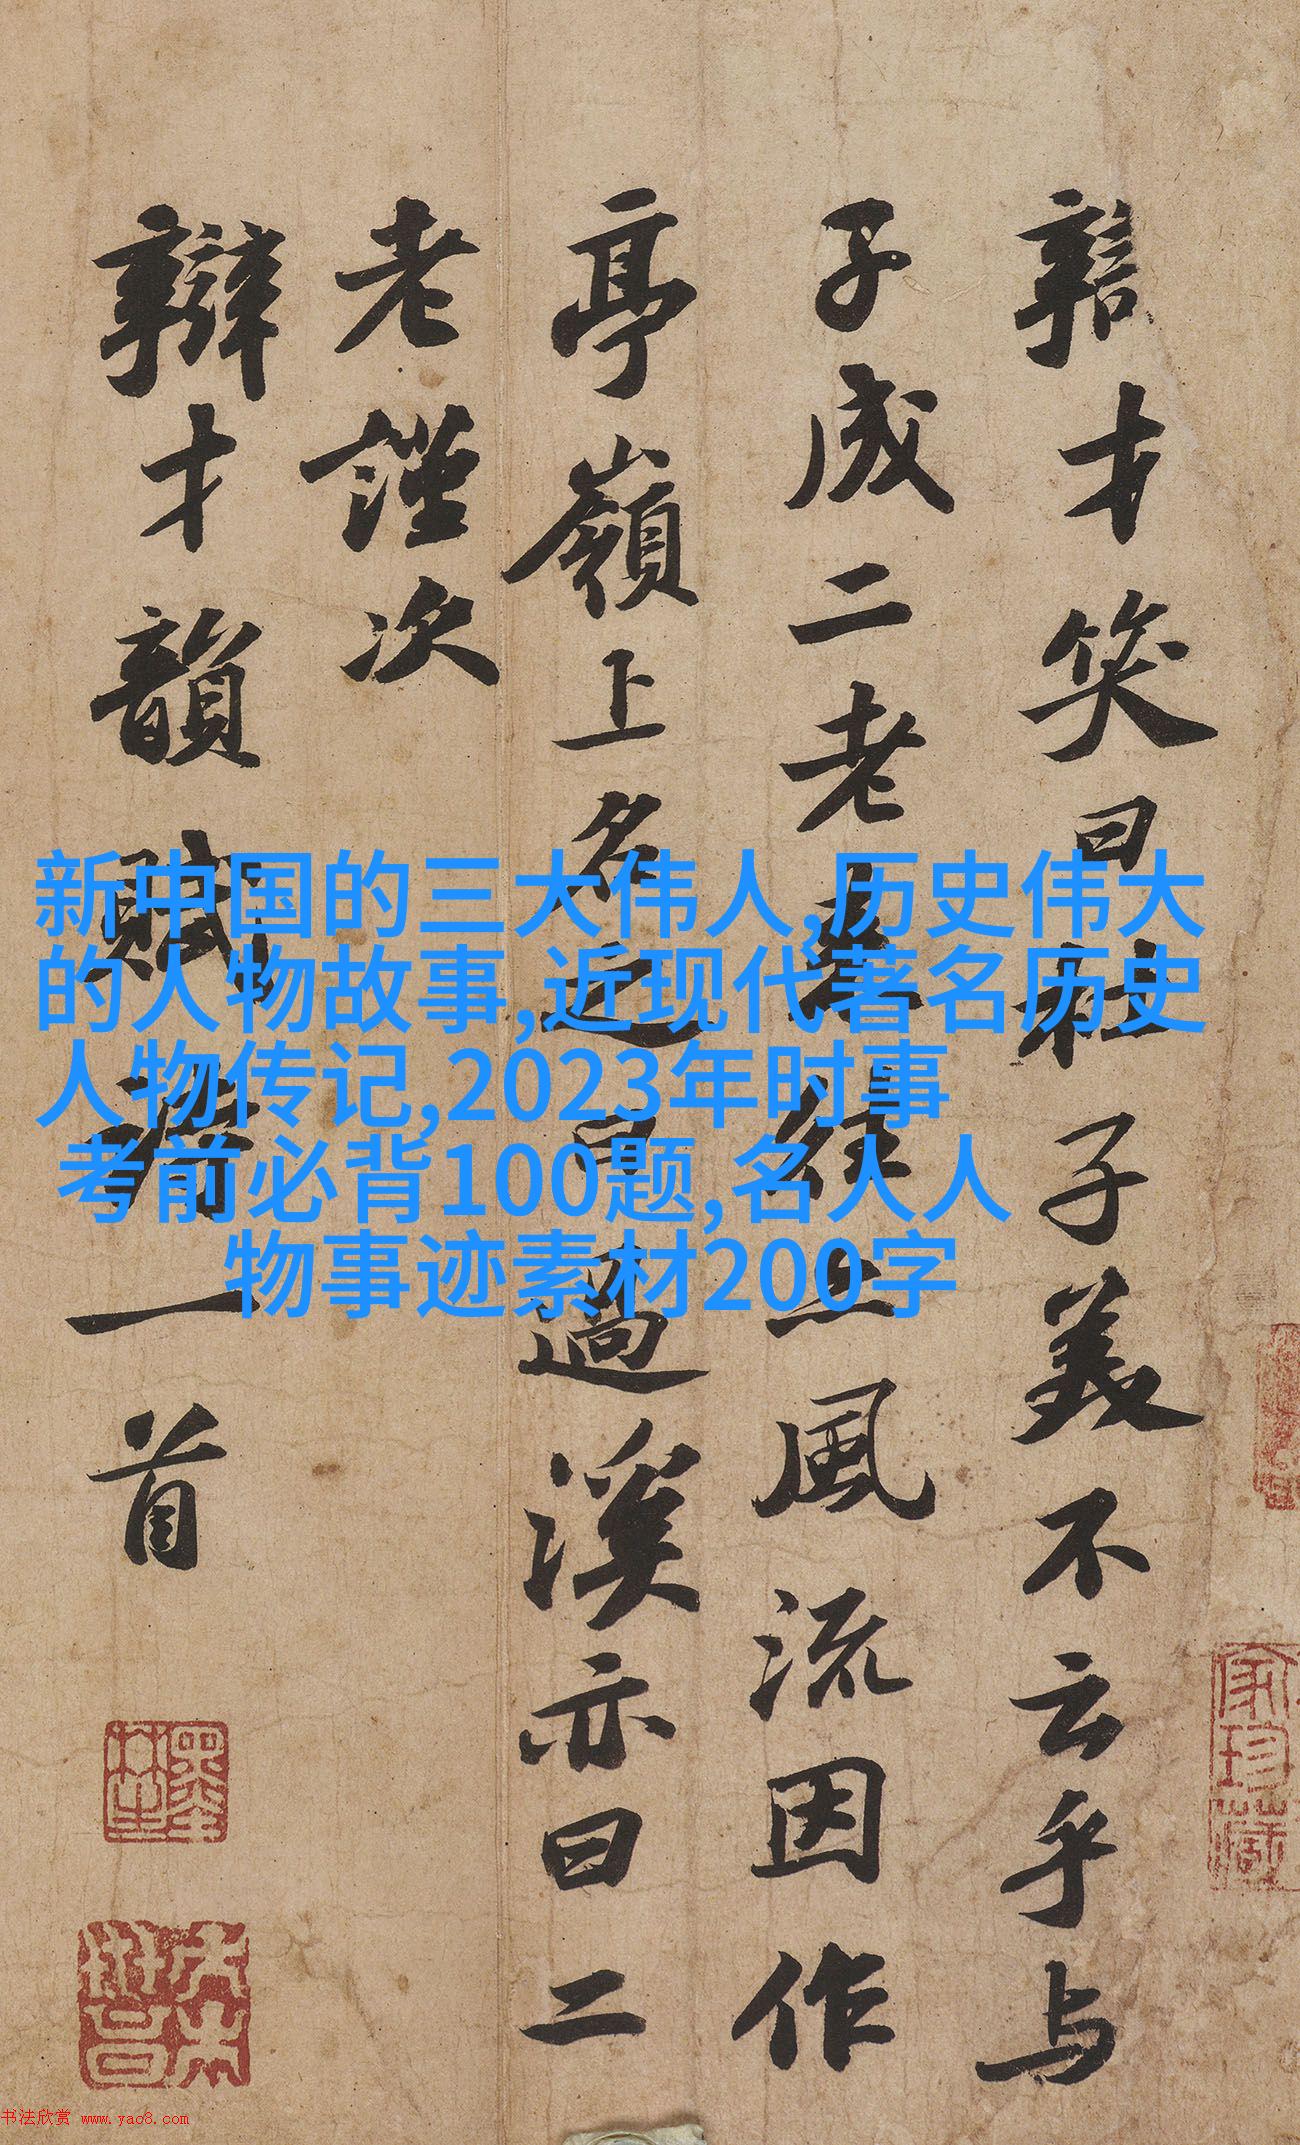 辯才笑曰杜子美不云乎与
子成二老来往亦風流因作
亭嶺上名之曰過溪亦曰二
老謹次
辯才韻賦詩一首
新中国的三大伟人,历史伟大
的人物故事,近现代著名历史
人物传记,2023年时事
考前必背100题,名人人
物事迹素材200字
家珍藏
书法欣赏 www.yac8.com